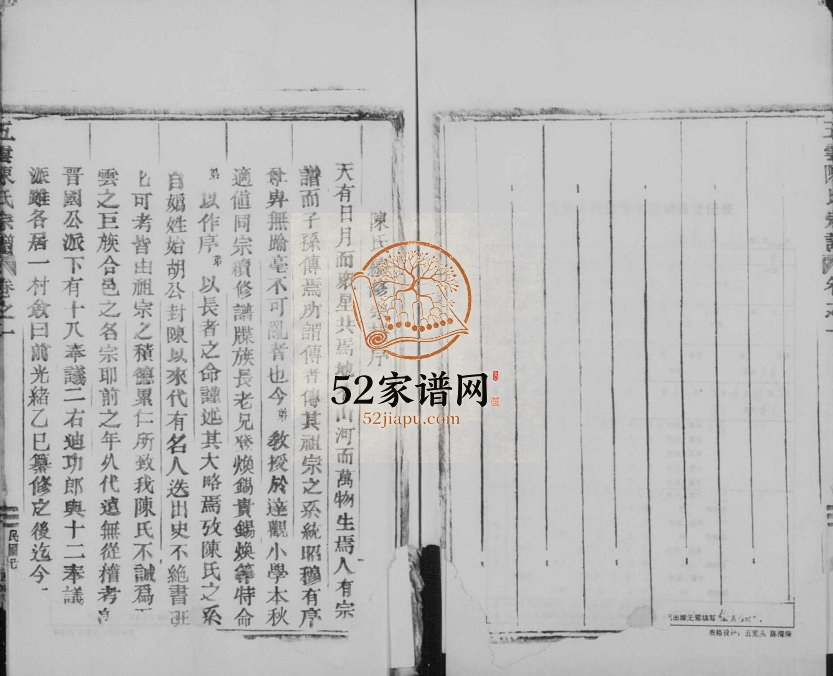 陳氏修序
天有日月而衆星共焉地山河而萬物生焉人有宗
譜而子孫傳焉所謂傳者傳其祖宗之系統昭穆有序
尊卑無踰亳不可亂者也今弟教授於達觀小學本秋
適値同宗續修譜牒族長老兄煥錫貴錫煥等特命
弟以作序弟以長者之命謹述其大略焉攷陳氏之系
自嬀姓始胡公封陳以來代有名人迭出史不絶書
可考皆由祖宗之積德累仁所致我陳氏不誠爲
雲之巨族合邑之名宗耶前之年久代遠無從稽考
晉國公派下有十八奉議二右迪功郎與十二奉議
派雖各居一村敘曰前光緒乙巳纂修之後迄今
五雲陳氏宗譜 卷之一
民國元
五雲陳氏宗譜
52家谱网
52jiapu.com
表格设计：五苋头 陈熠熔